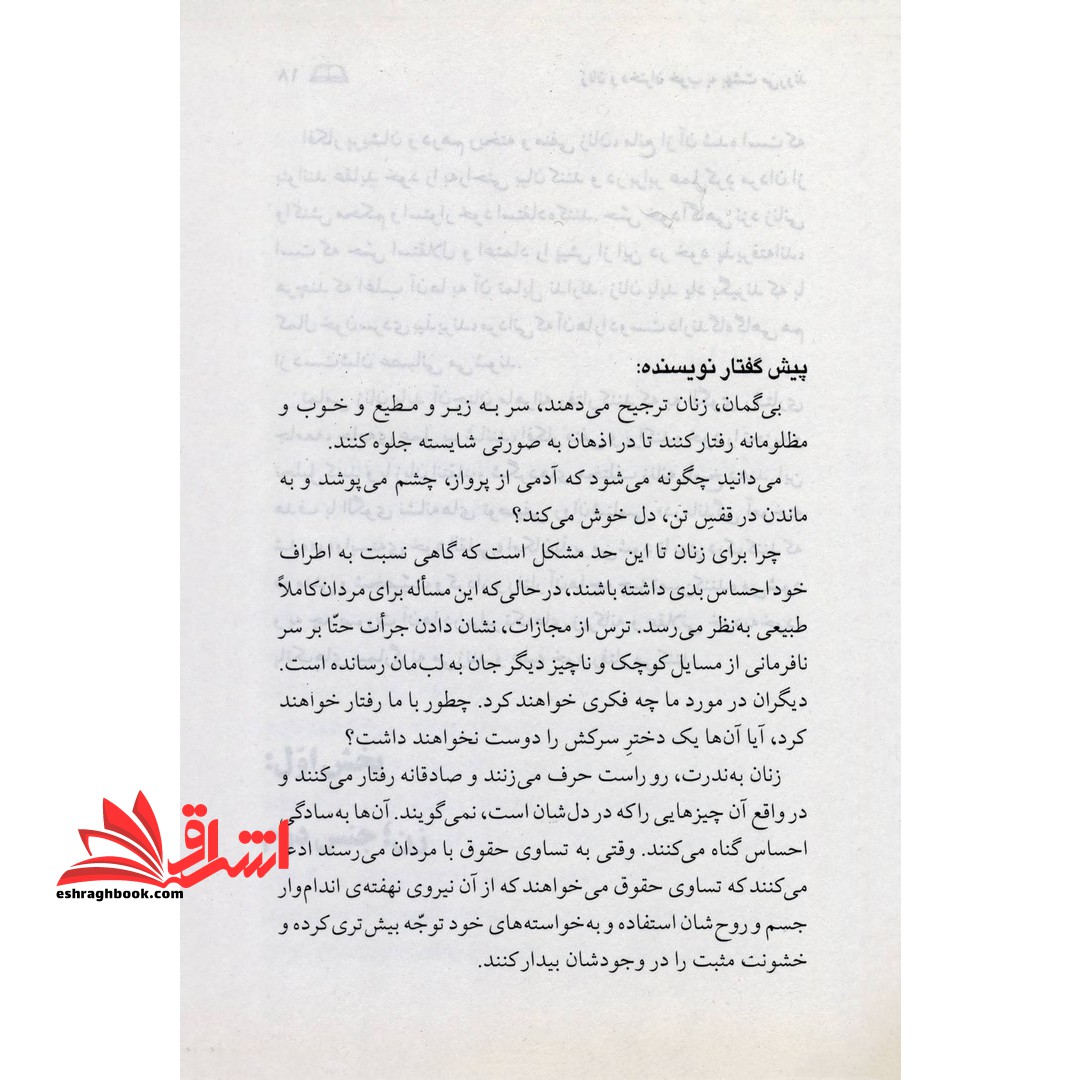 پیش گفتار نویسنده:
بی‌گمان، زنان ترجیح می‌دهند، سر به زیر و مطیع و خوب و
مظلومانه رفتار کنند تا در اذهان به صورتی شایسته جلوه کنند.
می‌دانید چگونه می‌شود که آدمی از پرواز، چشم می‌پوشد و به
ماندن در قفسِ تن، دل خوش می‌کند؟
چرا برای زنان تا این حد مشکل است که گاهی نسبت به اطراف
خود احساس بدی داشته باشند، در حالی که این مسأله برای مردان کاملاً
طبیعی به‌نظر می‌رسد. ترس از مجازات، نشان دادن جرأت حتّا بر سر
نافرمانی از مسایل کوچک و ناچیز دیگر جان به لب‌مان رسانده است.
دیگران در مورد ما چه فکری خواهند کرد. چطور با ما رفتار خواهند
کرد، آیا آن‌ها یک دخترِ سرکش را دوست نخواهند داشت؟
زنان به‌ندرت، رو راست حرف می‌زنند و صادقانه رفتار می‌کنند و
در واقع آن چیزهایی را که در دل‌شان است، نمی‌گویند. آن‌ها به‌سادگی
احساس گناه می‌کنند. وقتی به تساوی حقوق با مردان می‌رسند ادعا
می‌کنند که تساوی حقوق می‌خواهند که از آن نیروی نهفته‌ی اندام‌وار
جسم و روح‌شان استفاده و به‌خواسته‌های خود توجّه بیش‌تری کرده و
خشونت مثبت را در وجودشان بیدار کنند.
اشراق
eshraghbook.com